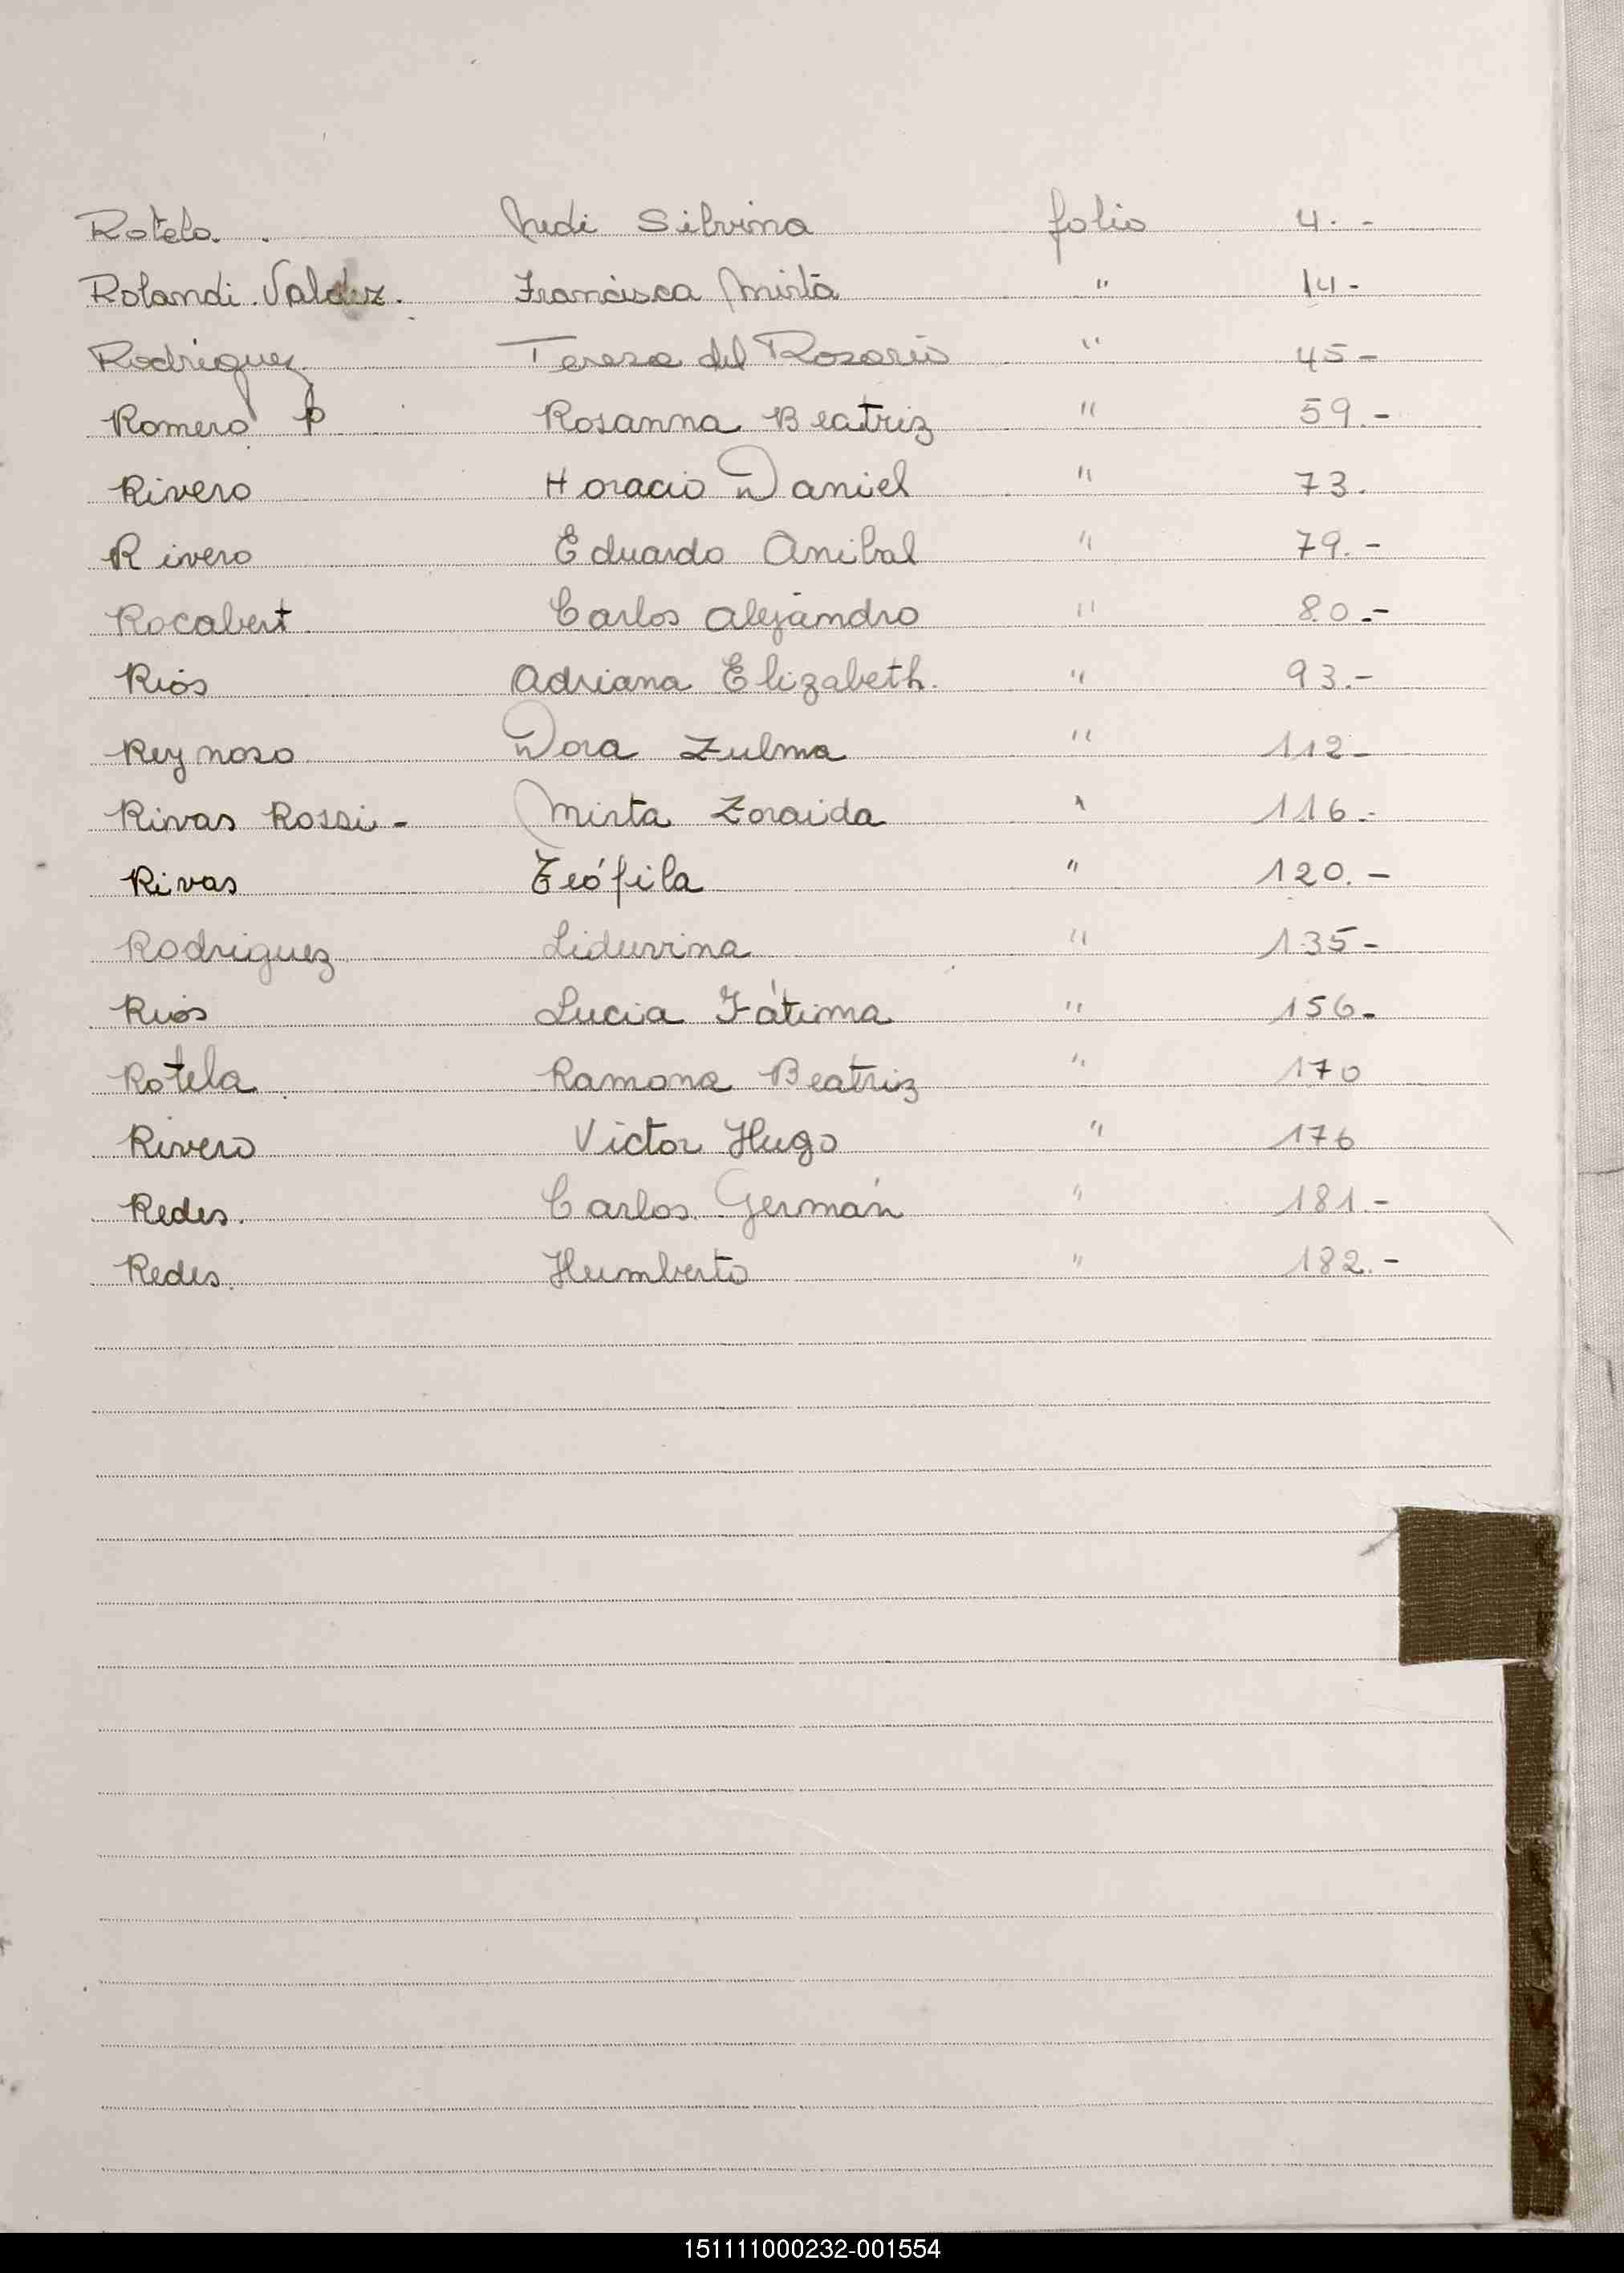 Rotela. Nedi Silvina folio 4.-
Rolandi Valdez. Francisca Mirta " 14-
Rodriguez Teresa del Rosario " 45-
Romero P Rosanna Beatriz " 59.-
Rivero Horacio Daniel " 73.
Rivero Eduardo Anibal " 79.-
Rocabert Carlos Alejandro " 80.-
Riós Adriana Elizabeth. " 93.-
Reynoso Dora Zulma " 112-
Rivas Rossi- Mirta Zoraida " 116.-
Rivas Teófila " 120.-
Rodriguez Liduvina " 135-
Riós Lucia Fátima " 156-
Rotela Ramona Beatriz " 170
Rivero Victor Hugo " 176
Redes. Carlos Germán " 181.-
Redes. Humberto " 182.-
151111000232-001554